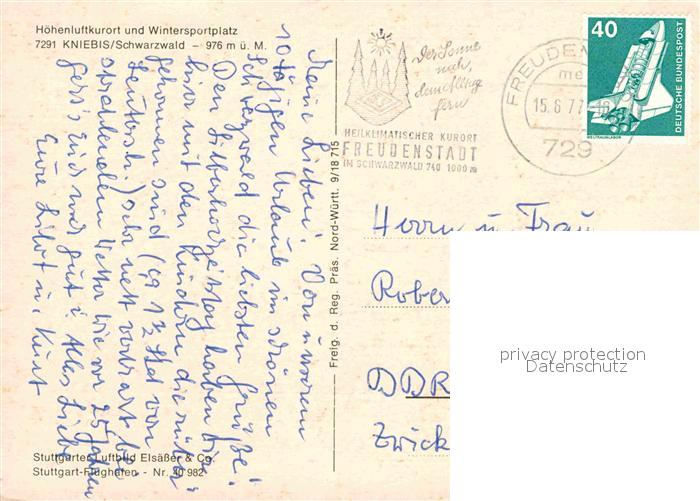 Höhenluftkurort und Wintersportplatz
7291 KNIEBIS/Schwarzwald – 976 m ü. M.
Meine Lieben! Von unserem
10 tägigen Urlaub im schönen
Schwarzwald die liebsten Grüße!
Den Silberhochzeitstag haben wir
hier mit den Kindern die rüber-
gekommen sind (ca 1½ Std von
) sehr nett verbracht bei
strahlendem Wetter wie vor 25 Jahren
geht's uns gut! Alles Liebe
Eure Lilot u. Kurt
Stuttgarter Luftbild Elsäßer & Co.
Stuttgart-Flughafen - Nr. 40 982
Freig. d. Reg. Präs. Nord-Württ. 9/18 715
Der Sonne
nah,
dem Alltag
fern
HEILKLIMATISCHER KURORT
FREUDENSTADT
IM SCHWARZWALD 740 1000 m
FREUDEN
15.6.77
729
40
DEUTSCHE BUNDESPOST
WELTRAUMLABOR
Herrn u. Frau
Rober
DDR
Zwick
privacy protection
Datenschutz